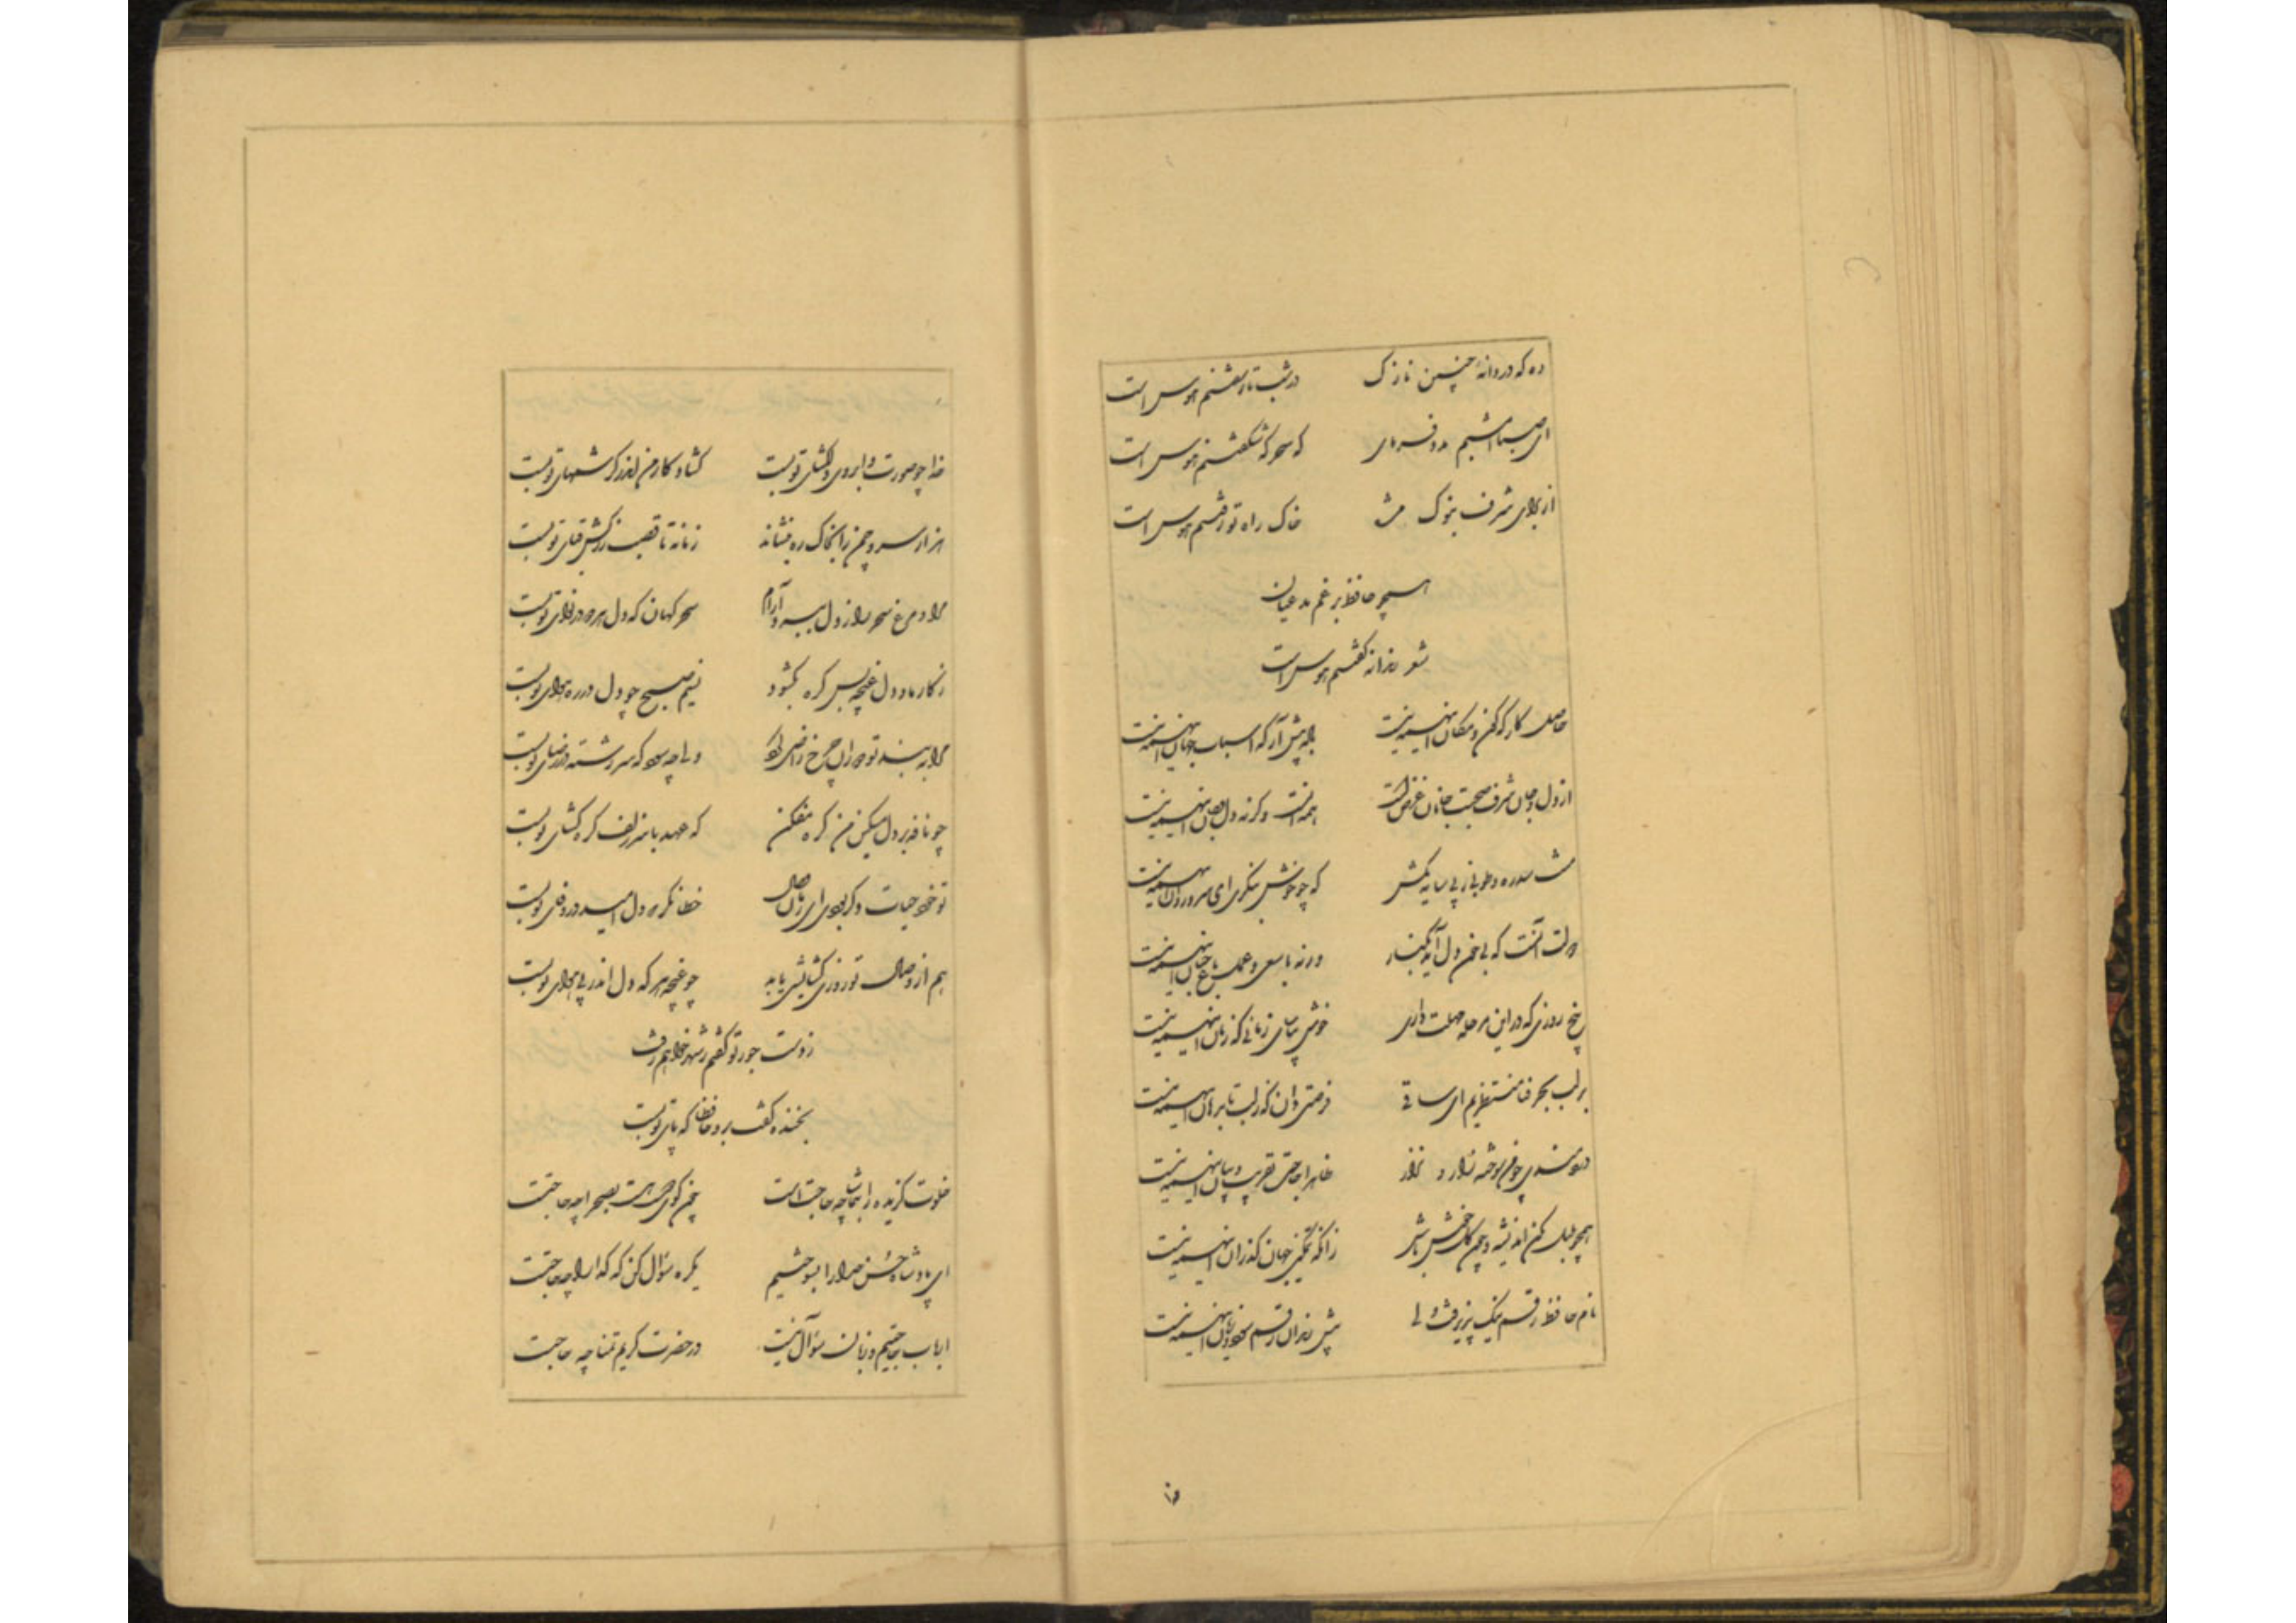 وه که دردانهٔ چنین نازک در شب تار سفتنم هوس است
ای صبا امشبم مدد فرمای که سحرگه شکفتنم هوس است
از برای شرف بنوک مژه خاک راه تو رفتنم هوس است
همچو حافظ برغم مدعیان
شعر رندانه گفتنم هوس است
حاصل کارگه کون و مکان اینهمه نیست باده پیش آر که اسباب جهان اینهمه نیست
از دل و جان شرف صحبت جانان غرض است همه آنست وگرنه دل و جان اینهمه نیست
منت سدره و طوبی ز پی سایه مکش که چو خوش بنگری ای سرو روان اینهمه نیست
دولت آنست که بی خون دل آید بکنار ورنه با سعی و عمل باغ جنان اینهمه نیست
پنج روزی که در این مرحله مهلت داری خوش بیاسای زمانی که زمان اینهمه نیست
بر لب بحر فنا منتظریم ای ساقی فرصتی دان که ز لب تا بدهان اینهمه نیست
دردمندی چو من سوخته زار و نزار ظاهرا حاجت تقریر و بیان اینهمه نیست
زانکه تمکین جهان گذران اینهمه نیست
نام حافظ رقم نیک پذیرفت ولی پیش رندان رقم سود و زیان اینهمه نیست
خدا چو صورت و ابروی دلگشای تو بست گشاد کار من اندر کرشمهای تو بست
هزار سرو چمن را بخاک ره بنشاند زمانه تا قصب زرکش قبای تو بست
مرا و مرغ سحر را ز دل ببرد آرام سحرگهان که دل هر دو در نوای تو بست
ز کار ما و دل غنچه بس گره بگشود نسیم صبح چو دل در ره هوای تو بست
مرا به بند تو دوران چرخ راضی کرد ولی چه سود که سررشته در رضای تو بست
چو نافه بر دل مسکین من گره مفکن که عهد با سر زلف گره گشای تو بست
تو خود حیات دگر بودی ای زمان وصال خطا نگر که دل امید در وفای تو بست
هم از وصال تو روزی گشایشی یابد چو غنچه هر که دل اندر پی هوای تو بست
ز دست جور تو گفتم ز شهر خواهم رفت
بخنده گفت برو حافظا که پای تو بست
خلوت گزیده را بتماشا چه حاجت است چون کوی دوست هست بصحرا چه حاجتست
ای پادشاه حسن خدا را بسوختیم یکره سؤال کن که گدا را چه حاجتست
ارباب حاجتیم و زبان سؤال نیست در حضرت کریم تمنا چه حاجتست